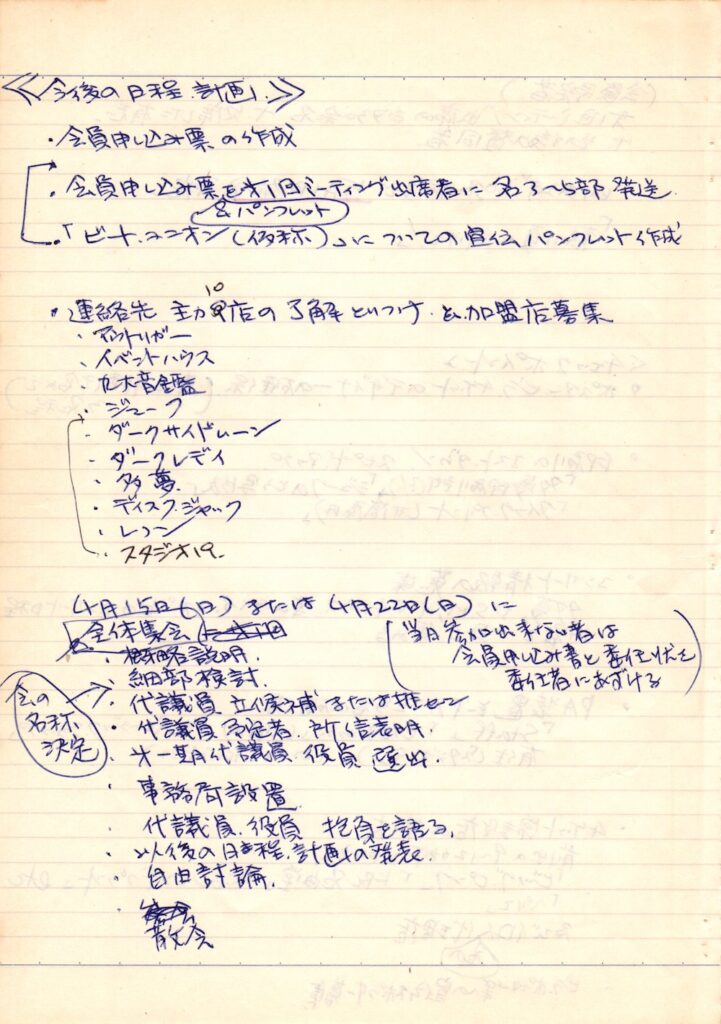 ≪今後の日程.計画.≫
・会員申し込み票の作成
・会員申し込み票を第1回ミーティング出席者に 各3〜5部 発送.
&パンフレット
・「ビート.ユニオン(仮称)」についての宣伝パンフレット作成
・連絡先 主力10店の了解とりつけ.と.加盟店募集
・アウトリガー
・イベントハウス
・九木音金監
・ジューク
・ダークサイドムーン
・ダークレディ
・多夢.
・ディスク.ジャック
・レコーン
・スタジオ19.
4月15日(日)または4月22日(日)に
全体集会
(当日参加出来ない者は
会員申し込み書と委任状を
委任者にあずける)
・概略説明.
・細部検討.
会の
名称
決定
・代議員 立候補または推せん
・代議員予定者 所信表明.
・第一期代議員 役員 選出.
・事務局設置
・代議員.役員 抱負を語る.
・以後の日程.計画の発表.
・自由討論.
・散会